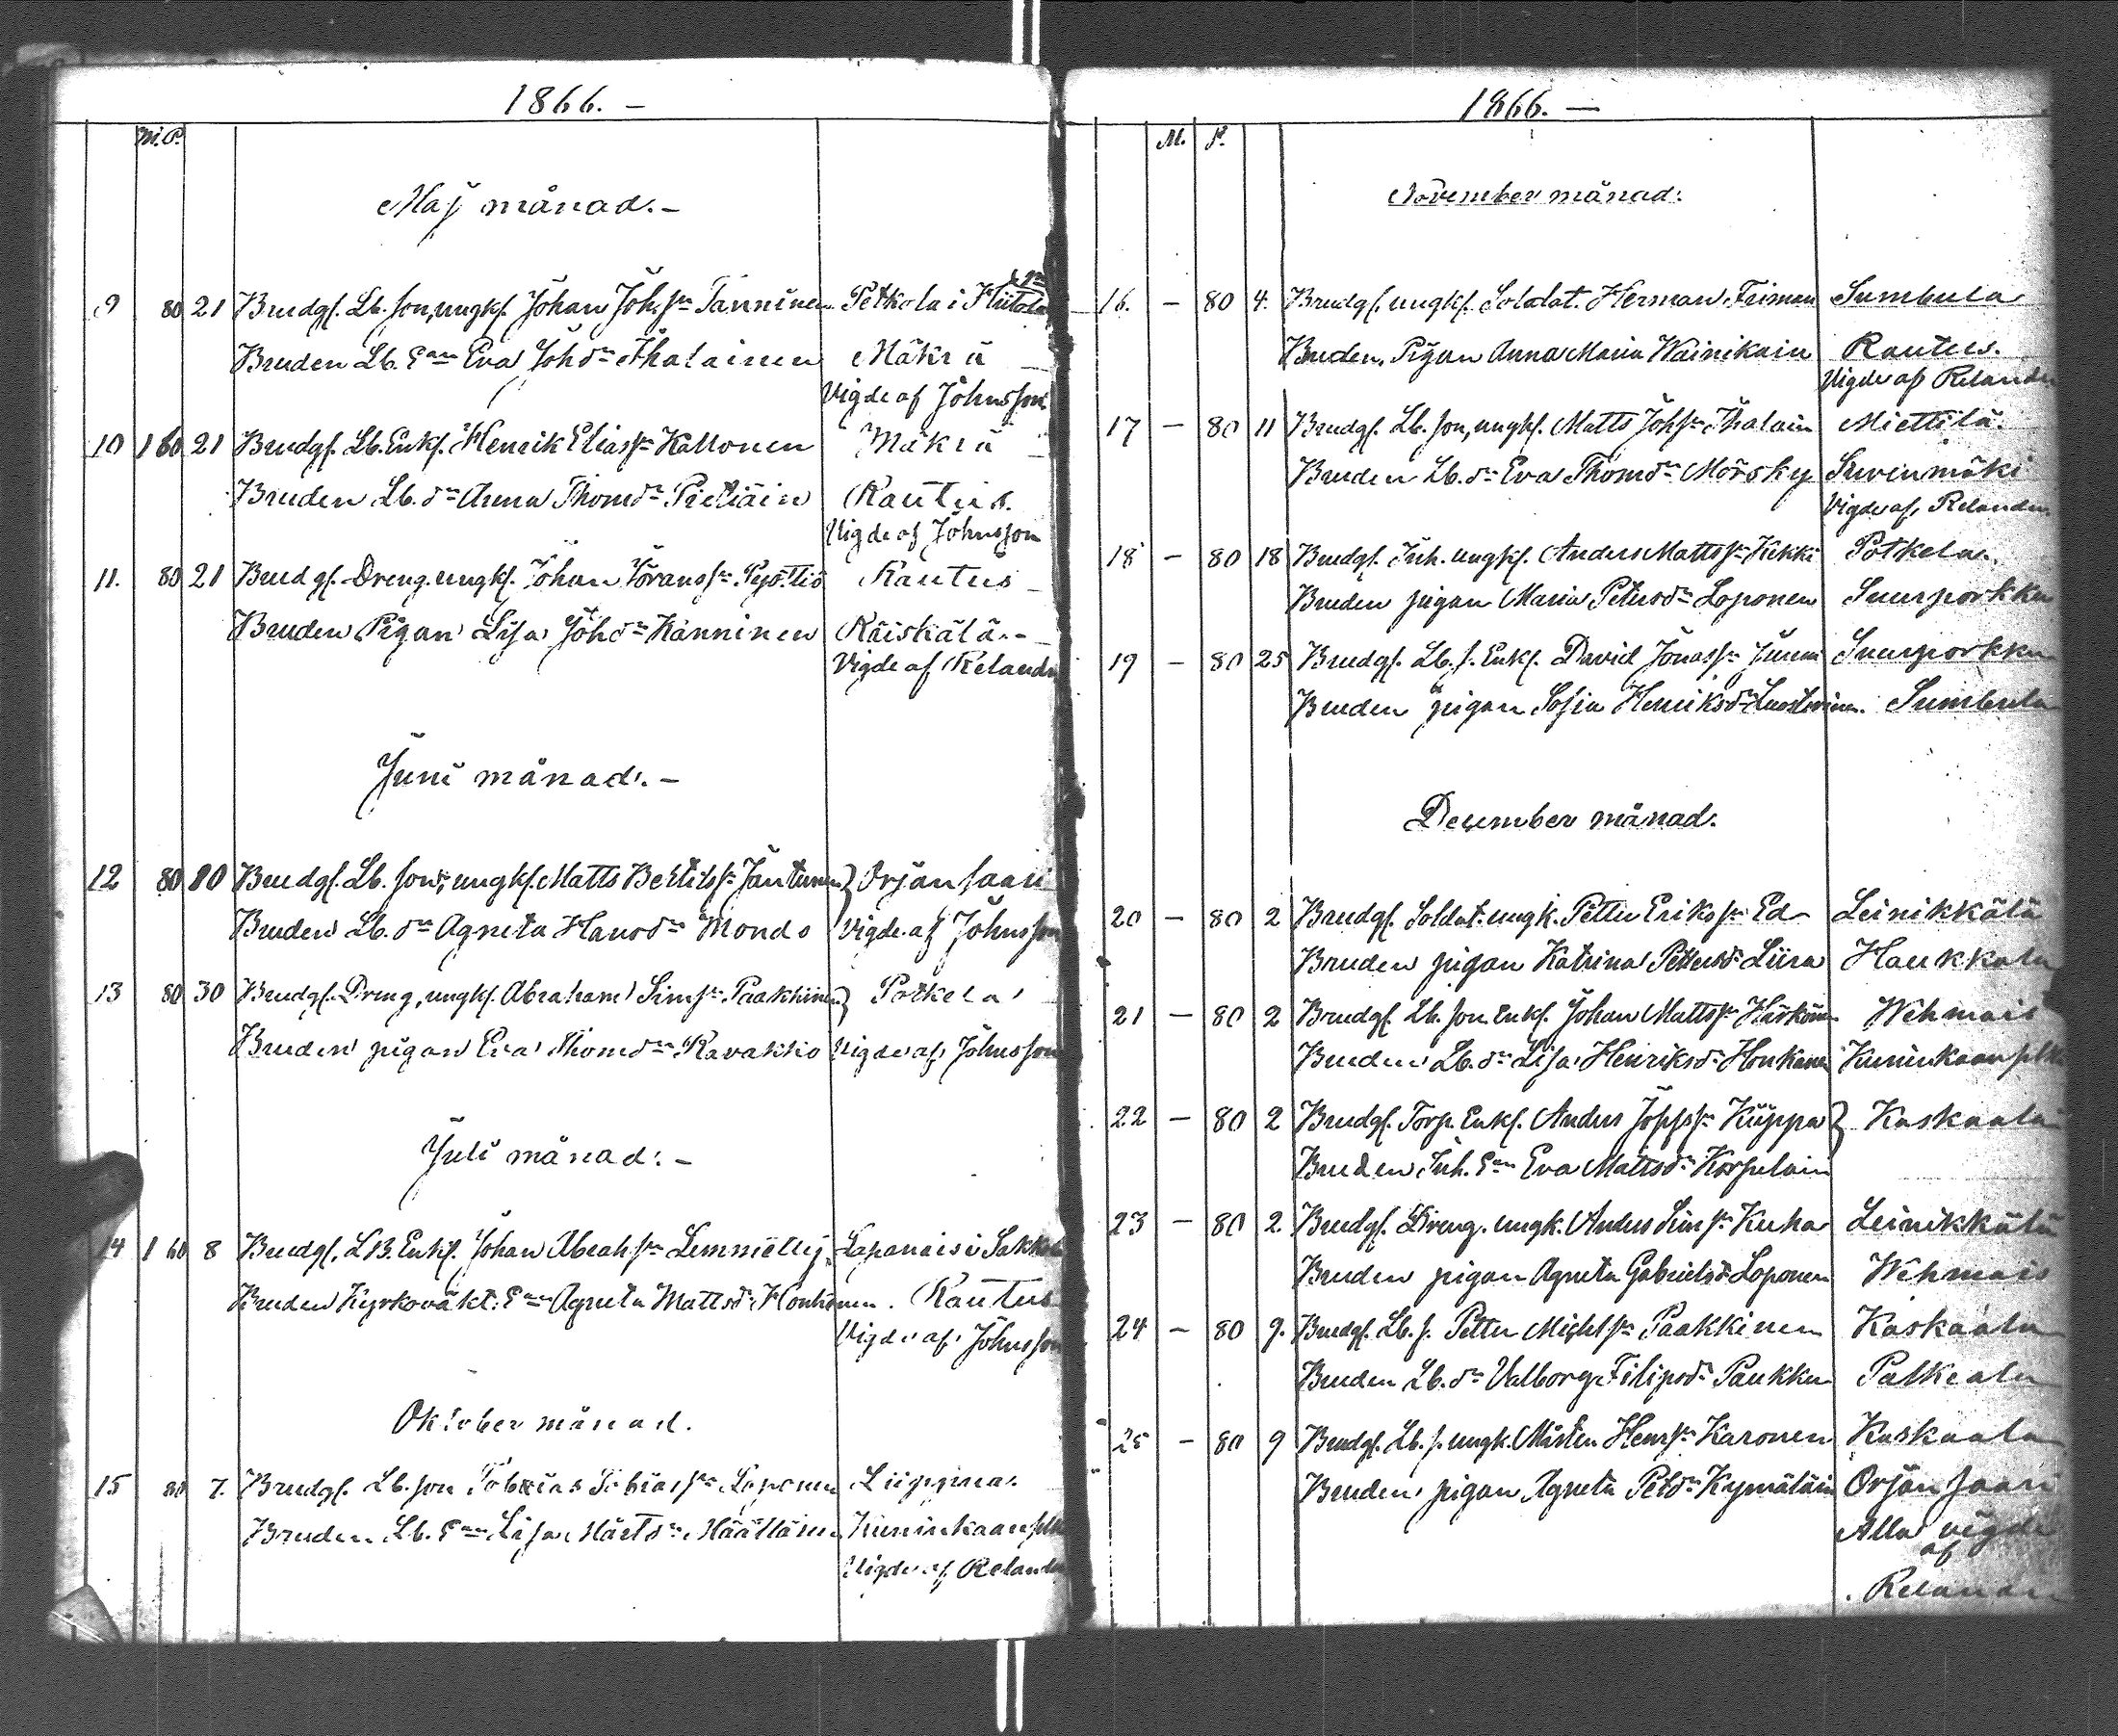 1866. –
M. P.
Maj månad. –
9 80 21 Brudg. Lb. son, ungk. Johan Joh. sn Tanninen Petkola i Hiitola
Bruden Lb. En. Eva Joh dn Ihalainen Mäkrä
Vigde af Johnsson
10 1 60 21 Brudg. Lb. Enkl. Henrik Eliass n Kallonen Mäkrä
Bruden Lb. dn Anna Thom dn Pietiäin Rautus.
Vigde af Johnsson
11. 80 21 Brudg. Dreng. ungk. Johan Göranss n Pyöttiö Rautus
Bruden Pigan Lisa Joh dn Känninen Räiskälä. –
Vigde af Relander
Juni månad. –
12 80 10 Brudg. Lb. son, ungk. Matts Bertilss n Jantunen } Orjansaari
Bruden Lb. dn Agneta Hans dn Monds Vigde af Johnsson
13 80 30 Brudg. Dreng, ungk. Abraham Sims n Paakkinen } Potkela
Bruden pigan Eva Thom dn Ravakko Vigde af Johnsson
Juli månad. –
14 1 60 8 Brudg. LB. Enkl. Johan Abrah sn Lemmetty, Lapanais i Sakkola
Bruden Kyrkovakt. En. Agneta Matts dn Honkanen. Rautus
Vigde af Johnsson
Oktober månad.
15 80 7. Brudg. Lb. son Tobias Tobiass n Loponen Liippua
Bruden Lb. En. Lisa Märts dn Määttänen Kuninkaanselk
Vigde af Relander
1866. –
M. P.
November månad.
16. – 80 4. Brudg. ungk. Soldat. Herman Friman Sumbula
Bruden. Pigan Anna Maria Wäinikain Rautus.
Vigde af Relander
17 – 80 11 Brudg. Lb. son, ungk. Matts Johs n Ihalain Miettilä.
Bruden Lb. dn Eva Thom dn Mörsky Survinmäki
Vigde af Relander
18 – 80 18 Brudg. Inh. ungk. Anders Mattss n Kikki Potkela.
Bruden pigan Maria Peters dn Loponen Suurporkku
19 – 80 25 Brudg. Lb. s. Enkl. David Jonass n Junni Suurporkku
Bruden pigan Sofia Henriks dn Luostarinen. Sumbula
December månad.
20 – 80 2 Brudg. Soldat. ungk. Petter Erikss n Ed Leinikkälä
Bruden pigan Katrina Petters dn Liira Haukkala
21 – 80 2 Brudg. Lb. son Enkl. Johan Mattss n Härkönen Wehmais
Bruden Lb. dn Lisa Henriks dn Honkanen Kuninkaanselk
22 – 80 2 Brudg. Torp. Enkl. Anders Josefs n Kuppa } Kaskaala
Bruden Inh. En. Eva Matts dn Korpelain
23 – 80 2 Brudg. Dreng. ungk. Anders Sims n Kuha Leinikkälä
Bruden pigan Agneta Gabriels dn Loponen Wehmais
24 – 80 9. Brudg. Lb. s. Petter Michels n Paakkinen Kaskaala
Bruden Lb. dn Valborg Filips dn Paukku Palkeala
25 – 80 9 Brudg. Lb. s. ungk. Mårten Hens n Karonen Kaskaala
Bruden pigan Agneta Pet dn Kymäläin Orjansaari
Alla vigde
af
Relander